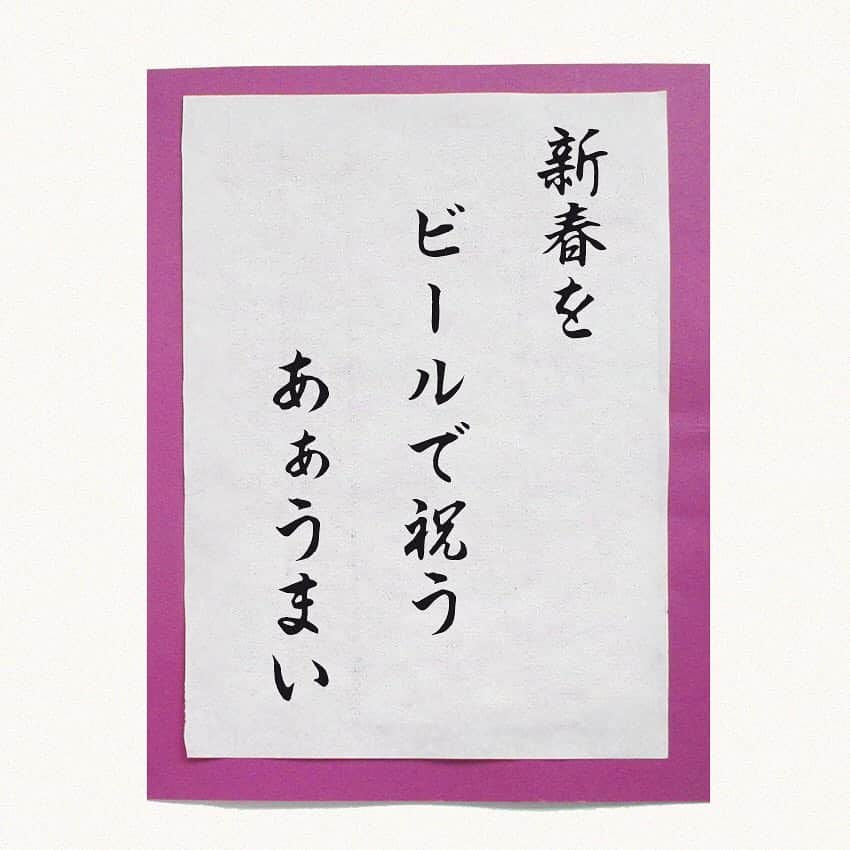 新春を
ビールで祝う
あぁうまい